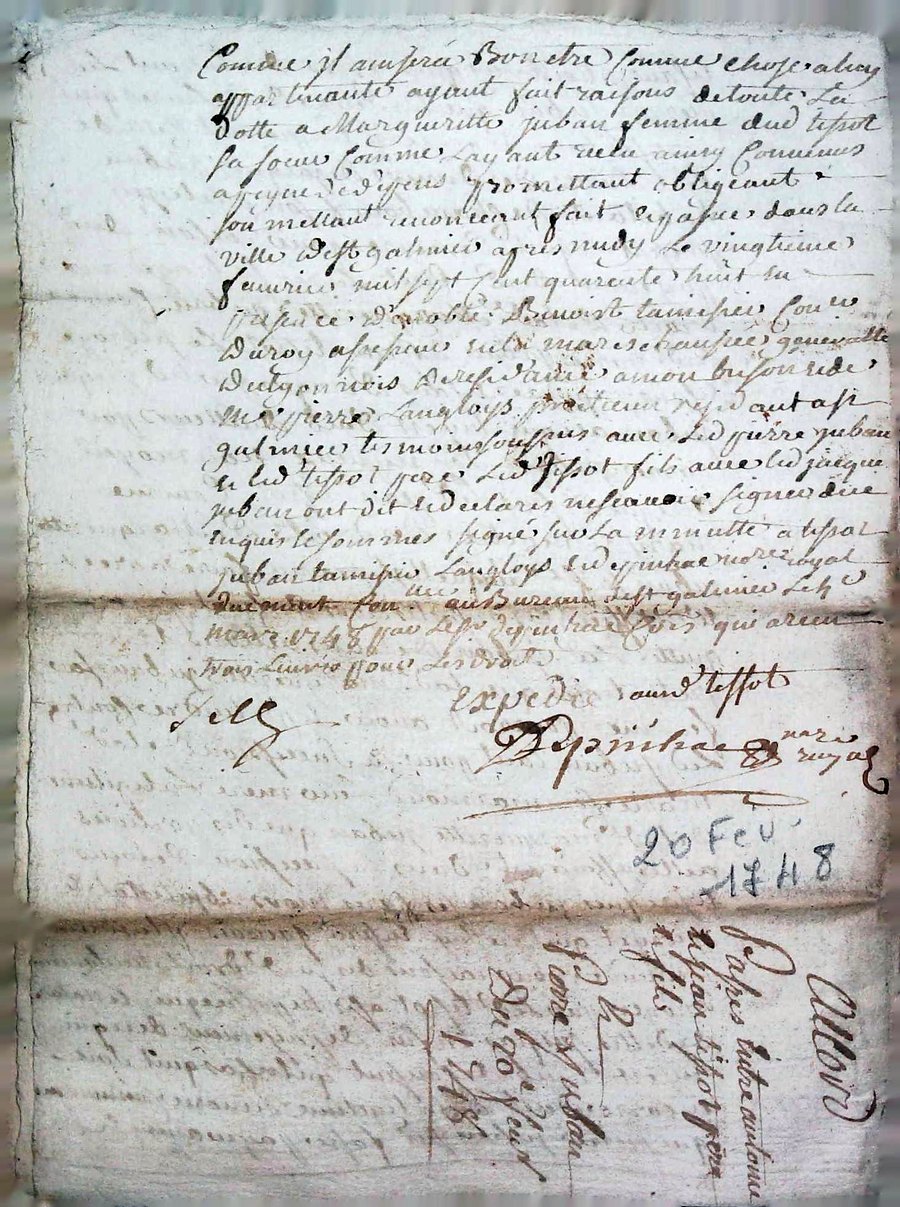 Comme il ausera Bon etre Comme chose a luy
appartenante ayant fait raisons de toute La
Dotte a Margueritte juban femme dud tissot
sa soeur Comme Layant recu ainsy Convenus
a peyne dedepens promettant obligeant
soumettant renonceant fait et passé dans la
ville de st galmier apres midy Le vingtieme
feuvrier mil sept cent quarente huit en
presence de noble Benoist tamisier Con.er
Du roy assesseur en la mareschaussée generalle
De lyonnois De residance a monbrison et de
M.e pierre Langloys praticien residant a st
galmier tesmoins soussignes avec Led pierre juban
et led tissot pere Led tissot fils avec led jacque
juban ont dit et declarés ne scavoir signer de ce
enquis et sommes signé sur La minutte a tissot
juban tamisier Langloys et despinhac no.re royal
duement Con.llée au Bureau de st galmier Le 4e
mars 1748 par Le s.r Despinhac Com.is qui a recu
trois Livres pour Les droits
Scellé
Expedié aud tissot
Despinhac no.re royal
20 Fev.
1748
Accord
Passes entre antoinne
et jean tissot pere
et fils
Et
Pierre Juban
Du 20e feuv.r
1748